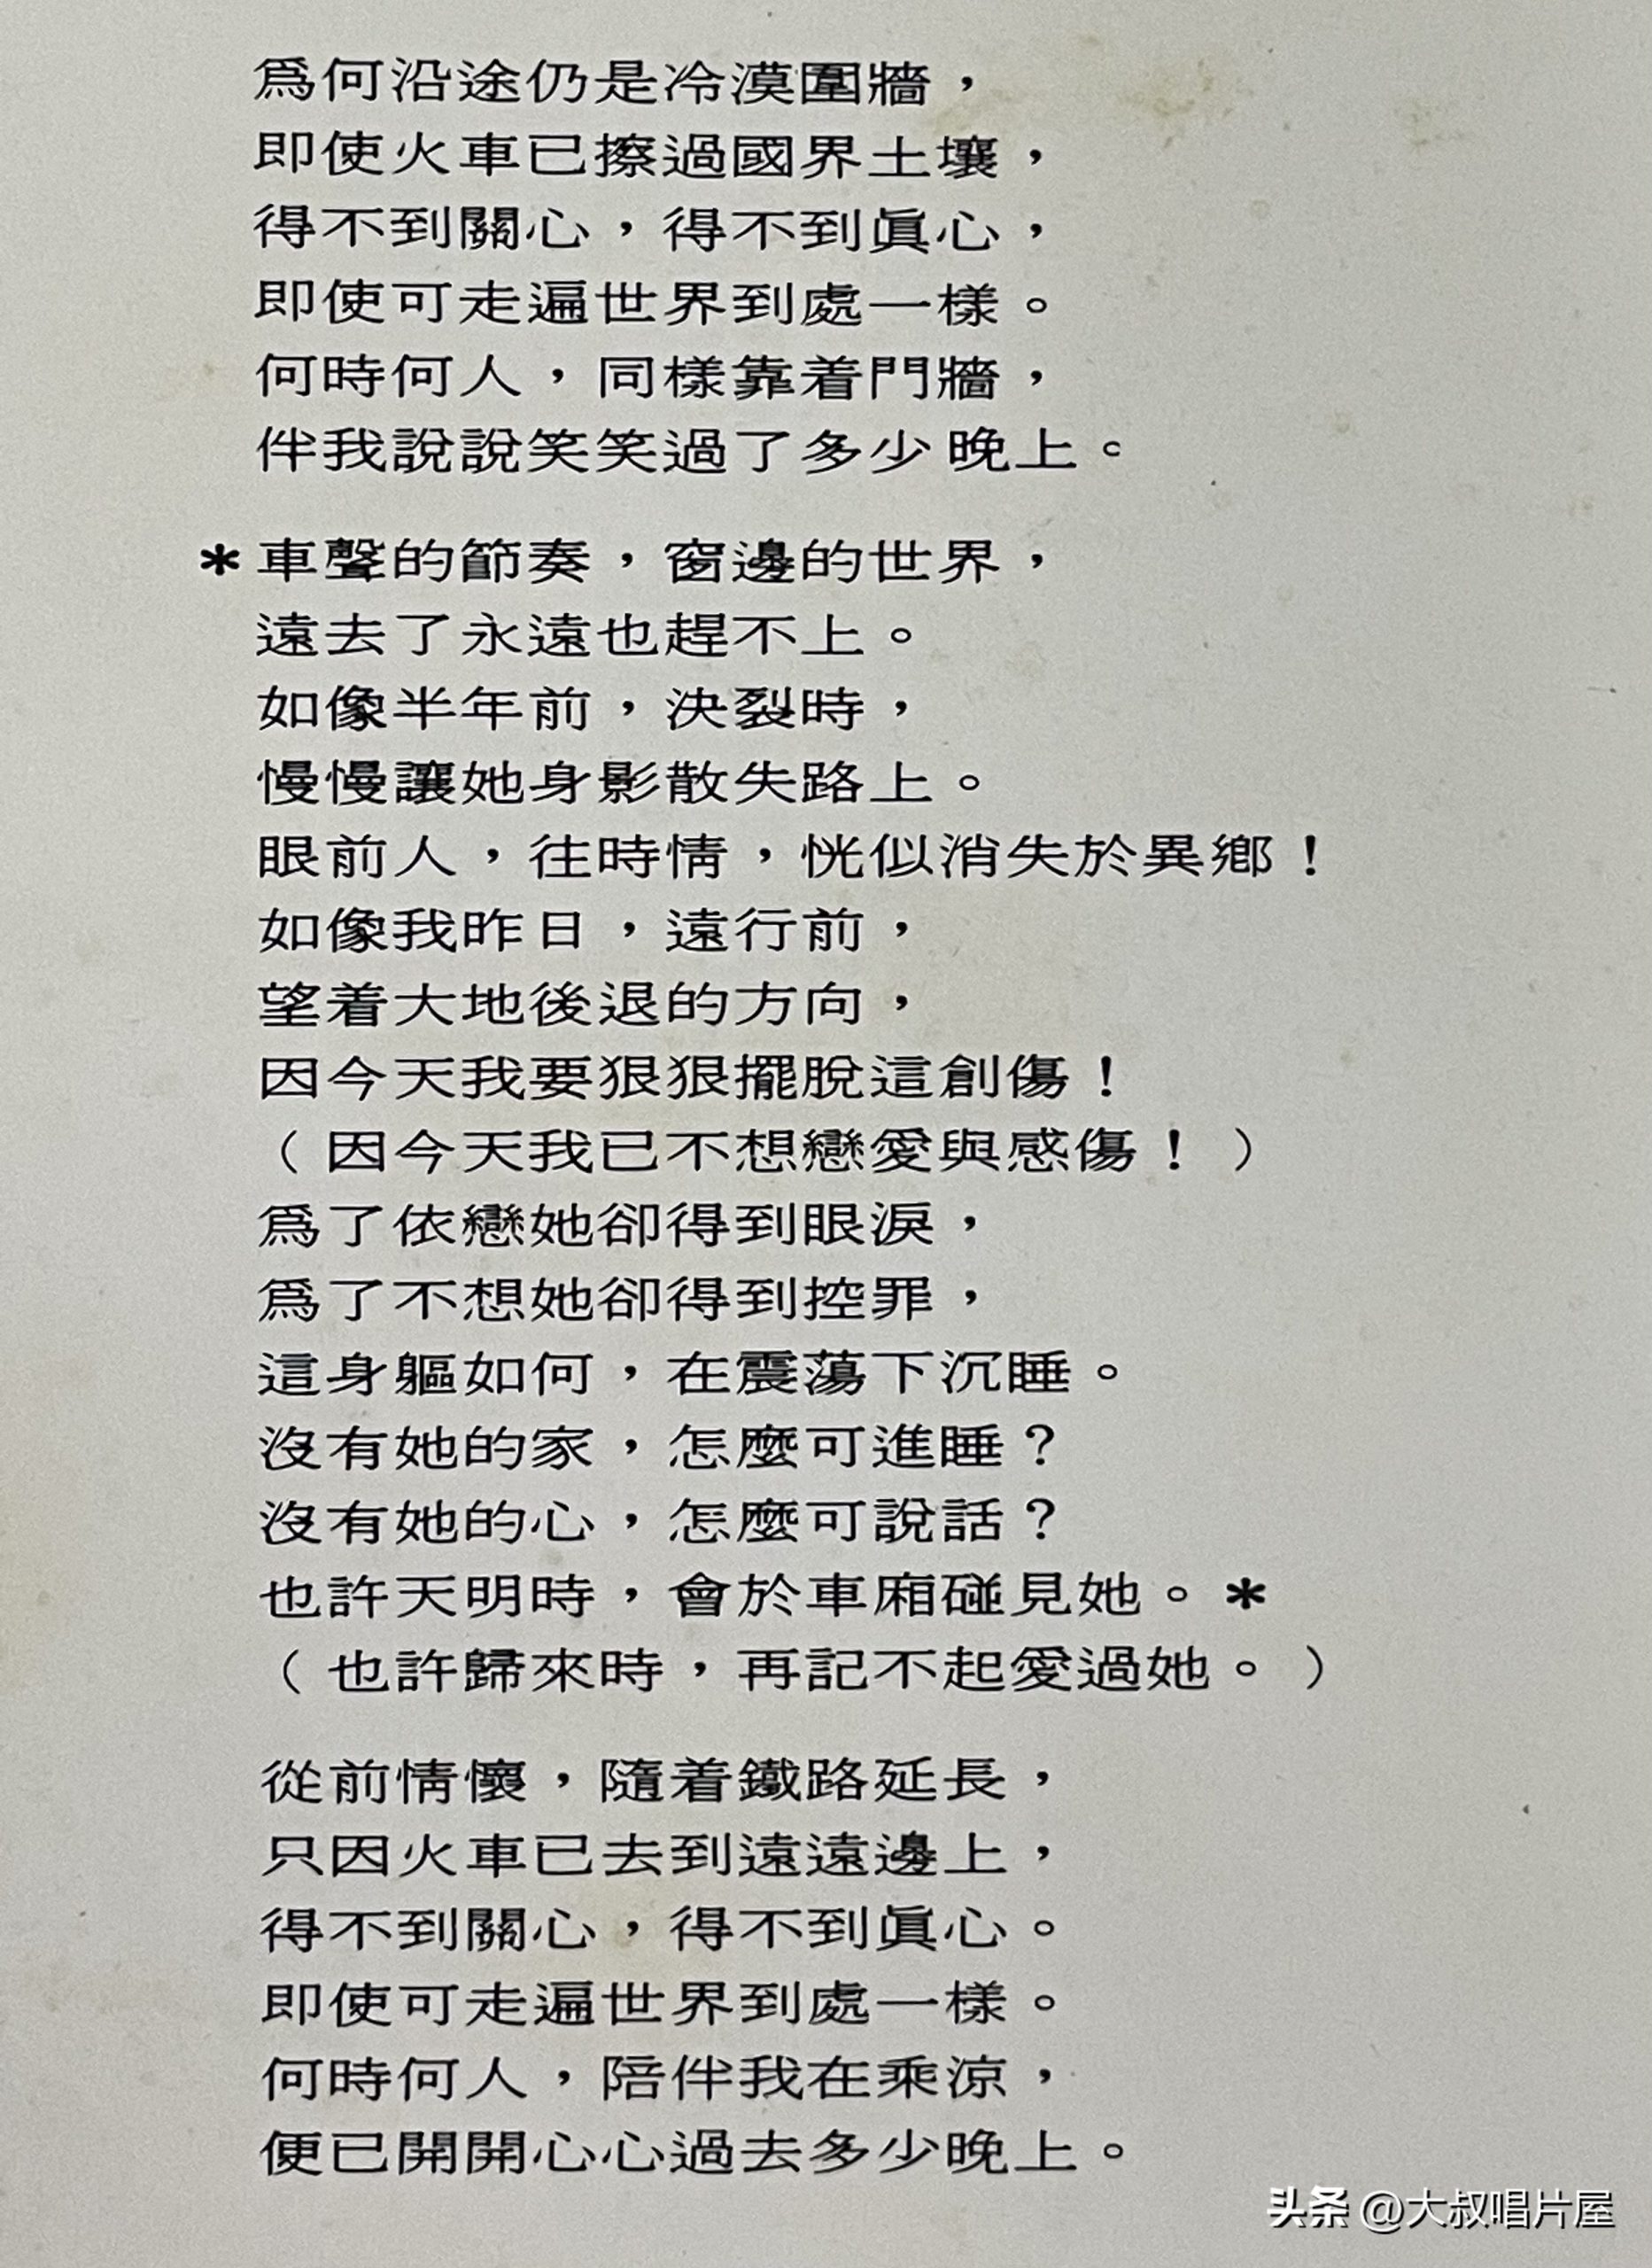 爲何沿途仍是冷漠圍牆，
即使火車已擦過國界土壤，
得不到關心，得不到眞心，
即使可走遍世界到處一樣。
何時何人，同樣靠着門牆，
伴我說說笑笑過了多少晚上。
＊車聲的節奏，窗邊的世界，
遠去了永遠也趕不上。
如像半年前，決裂時，
慢慢讓她身影散失路上。
眼前人，往時情，恍似消失於異鄉！
如像我昨日，遠行前，
望着大地後退的方向，
因今天我要狠狠擺脫這創傷！
（因今天我已不想戀愛與感傷！）
爲了依戀她卻得到眼淚，
爲了不想她卻得到控罪，
這身軀如何，在震蕩下沉睡。
沒有她的家，怎麼可進睡？
沒有她的心，怎麼可說話？
也許天明時，會於車廂碰見她。＊
（也許歸來時，再記不起愛過她。）
從前情懷，隨着鐵路延長，
只因火車已去到遠遠邊上，
得不到關心，得不到眞心。
即使可走遍世界到處一樣。
何時何人，陪伴我在乘涼，
便已開開心心過去多少晚上。
头条 @大叔唱片屋